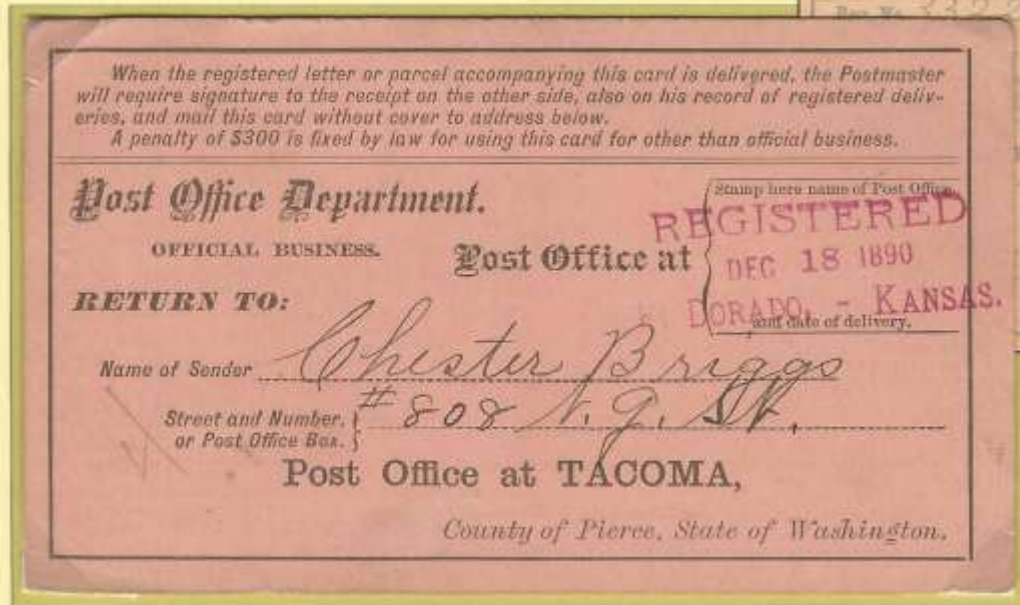 When the registered letter or parcel accompanying this card is delivered, the Postmaster
will require signature to the receipt on the other side, also on his record of registered deliv-
eries, and mail this card without cover to address below.
A penalty of $300 is fixed by law for using this card for other than official business.
Post Office Department.
OFFICIAL BUSINESS.
Post Office at
Stamp here name of Post Office
REGISTERED
DEC 18 1890
DORADO, - KANSAS.
and date of delivery.
RETURN TO:
Name of Sender Chester Briggs
Street and Number, # 808 N. G. St.
or Post Office Box.
Post Office at TACOMA,
County of Pierce, State of Washington.